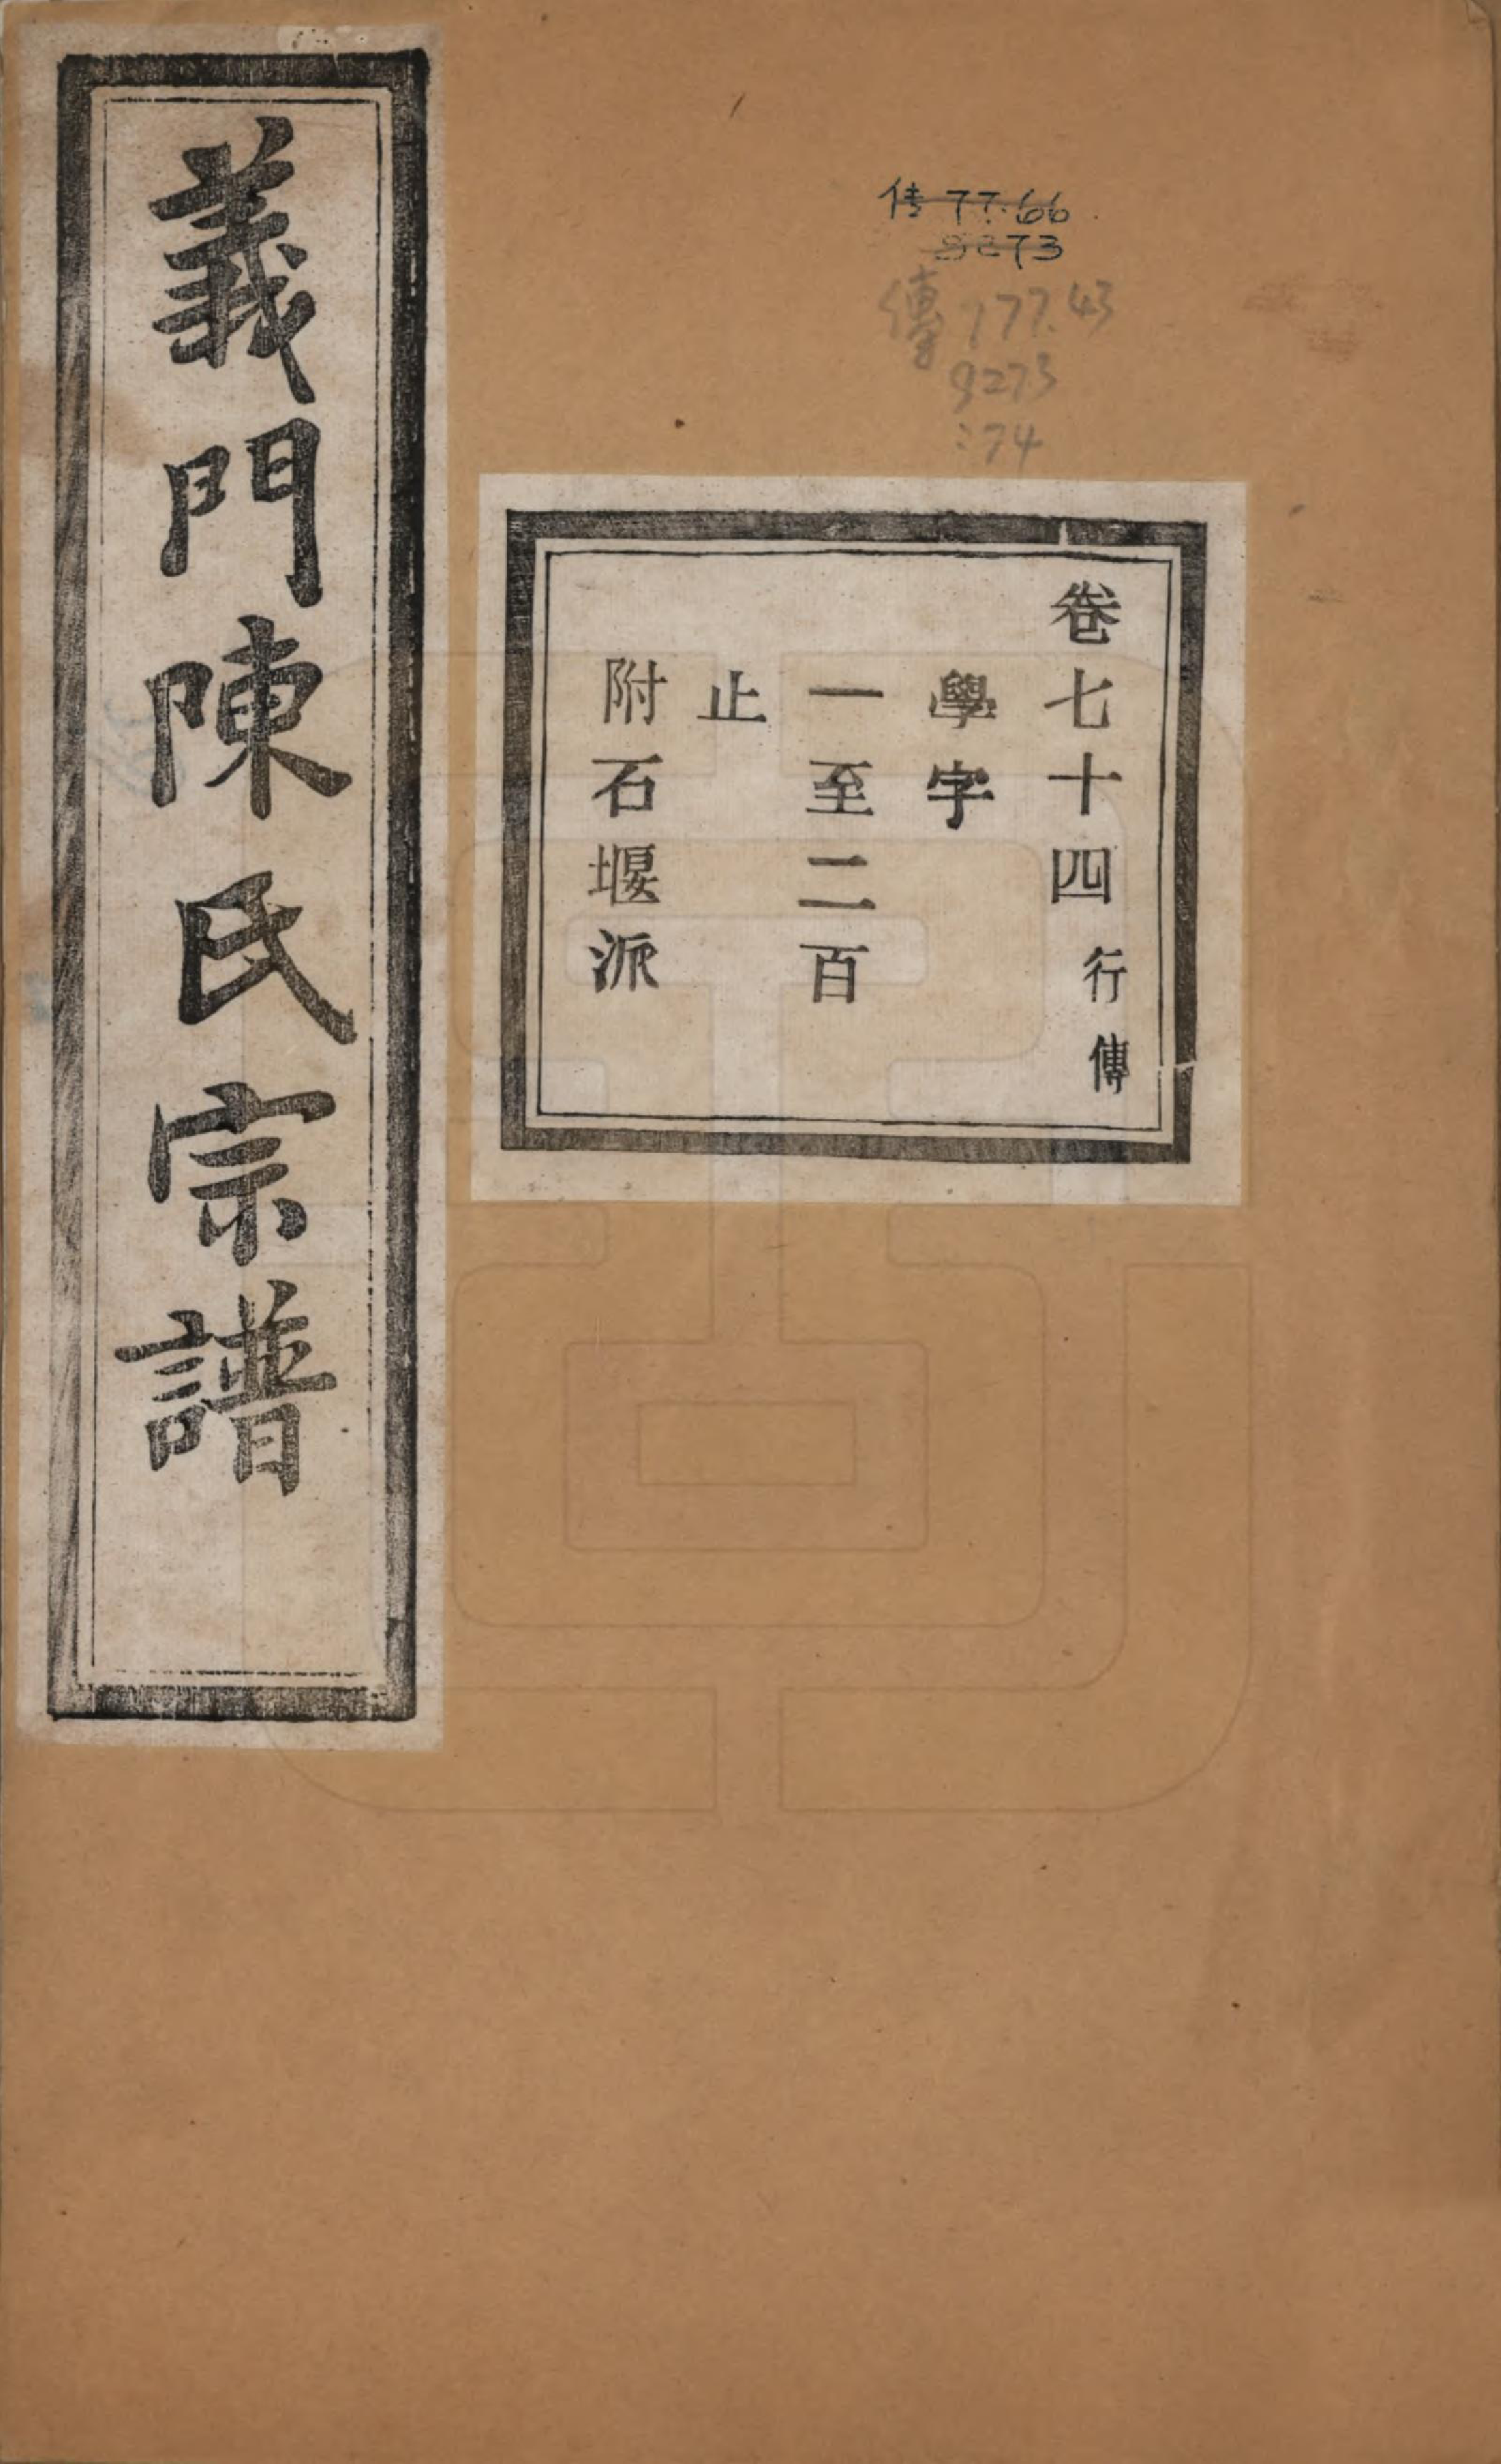 義門陳氏宗譜
传 77.66
9273
傳 977.43
9273
:74
卷七十四 行傳
學字
一至二百
止
附石堰派